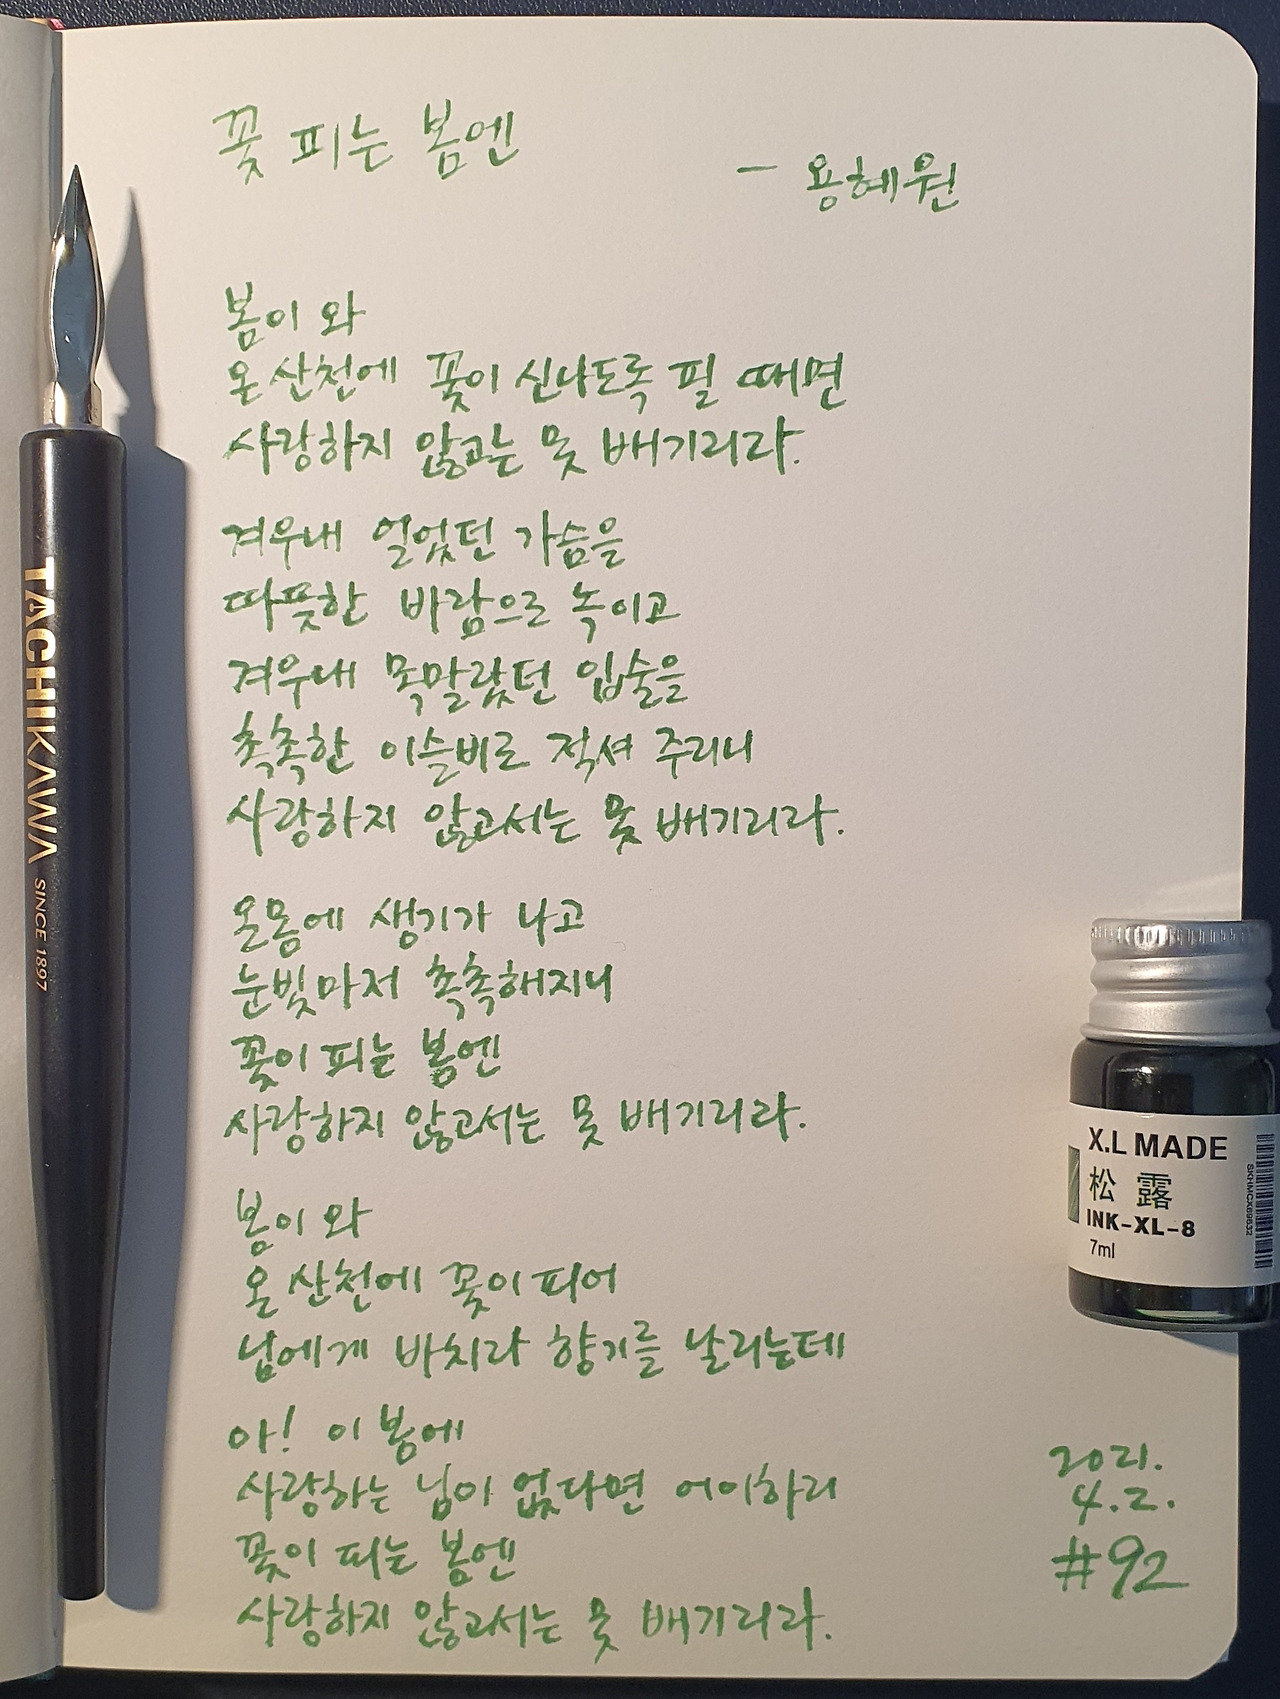 꽃 피는 봄엔
- 용혜원
봄이 와
온 산천에 꽃이 신나도록 필 때면
사랑하지 않고는 못 배기리라.
겨우내 얼었던 가슴을
따뜻한 바람으로 녹이고
겨우내 목말랐던 입술을
촉촉한 이슬비로 적셔 주리니
사랑하지 않고서는 못 배기리라.
온몸에 생기가 나고
눈빛마저 촉촉해지니
꽃이 피는 봄엔
사랑하지 않고서는 못 배기리라.
봄이 와
온 산천에 꽃이 피어
님에게 바치라 향기를 날리는데
아! 이 봄에
사랑하는 님이 없다면 어이하리
꽃이 피는 봄엔
사랑하지 않고서는 못 배기리라.
2021.
4.2.
#92
TACHIKAWA SINCE 1897
X.L MADE
松露
INK-XL-8
7ml